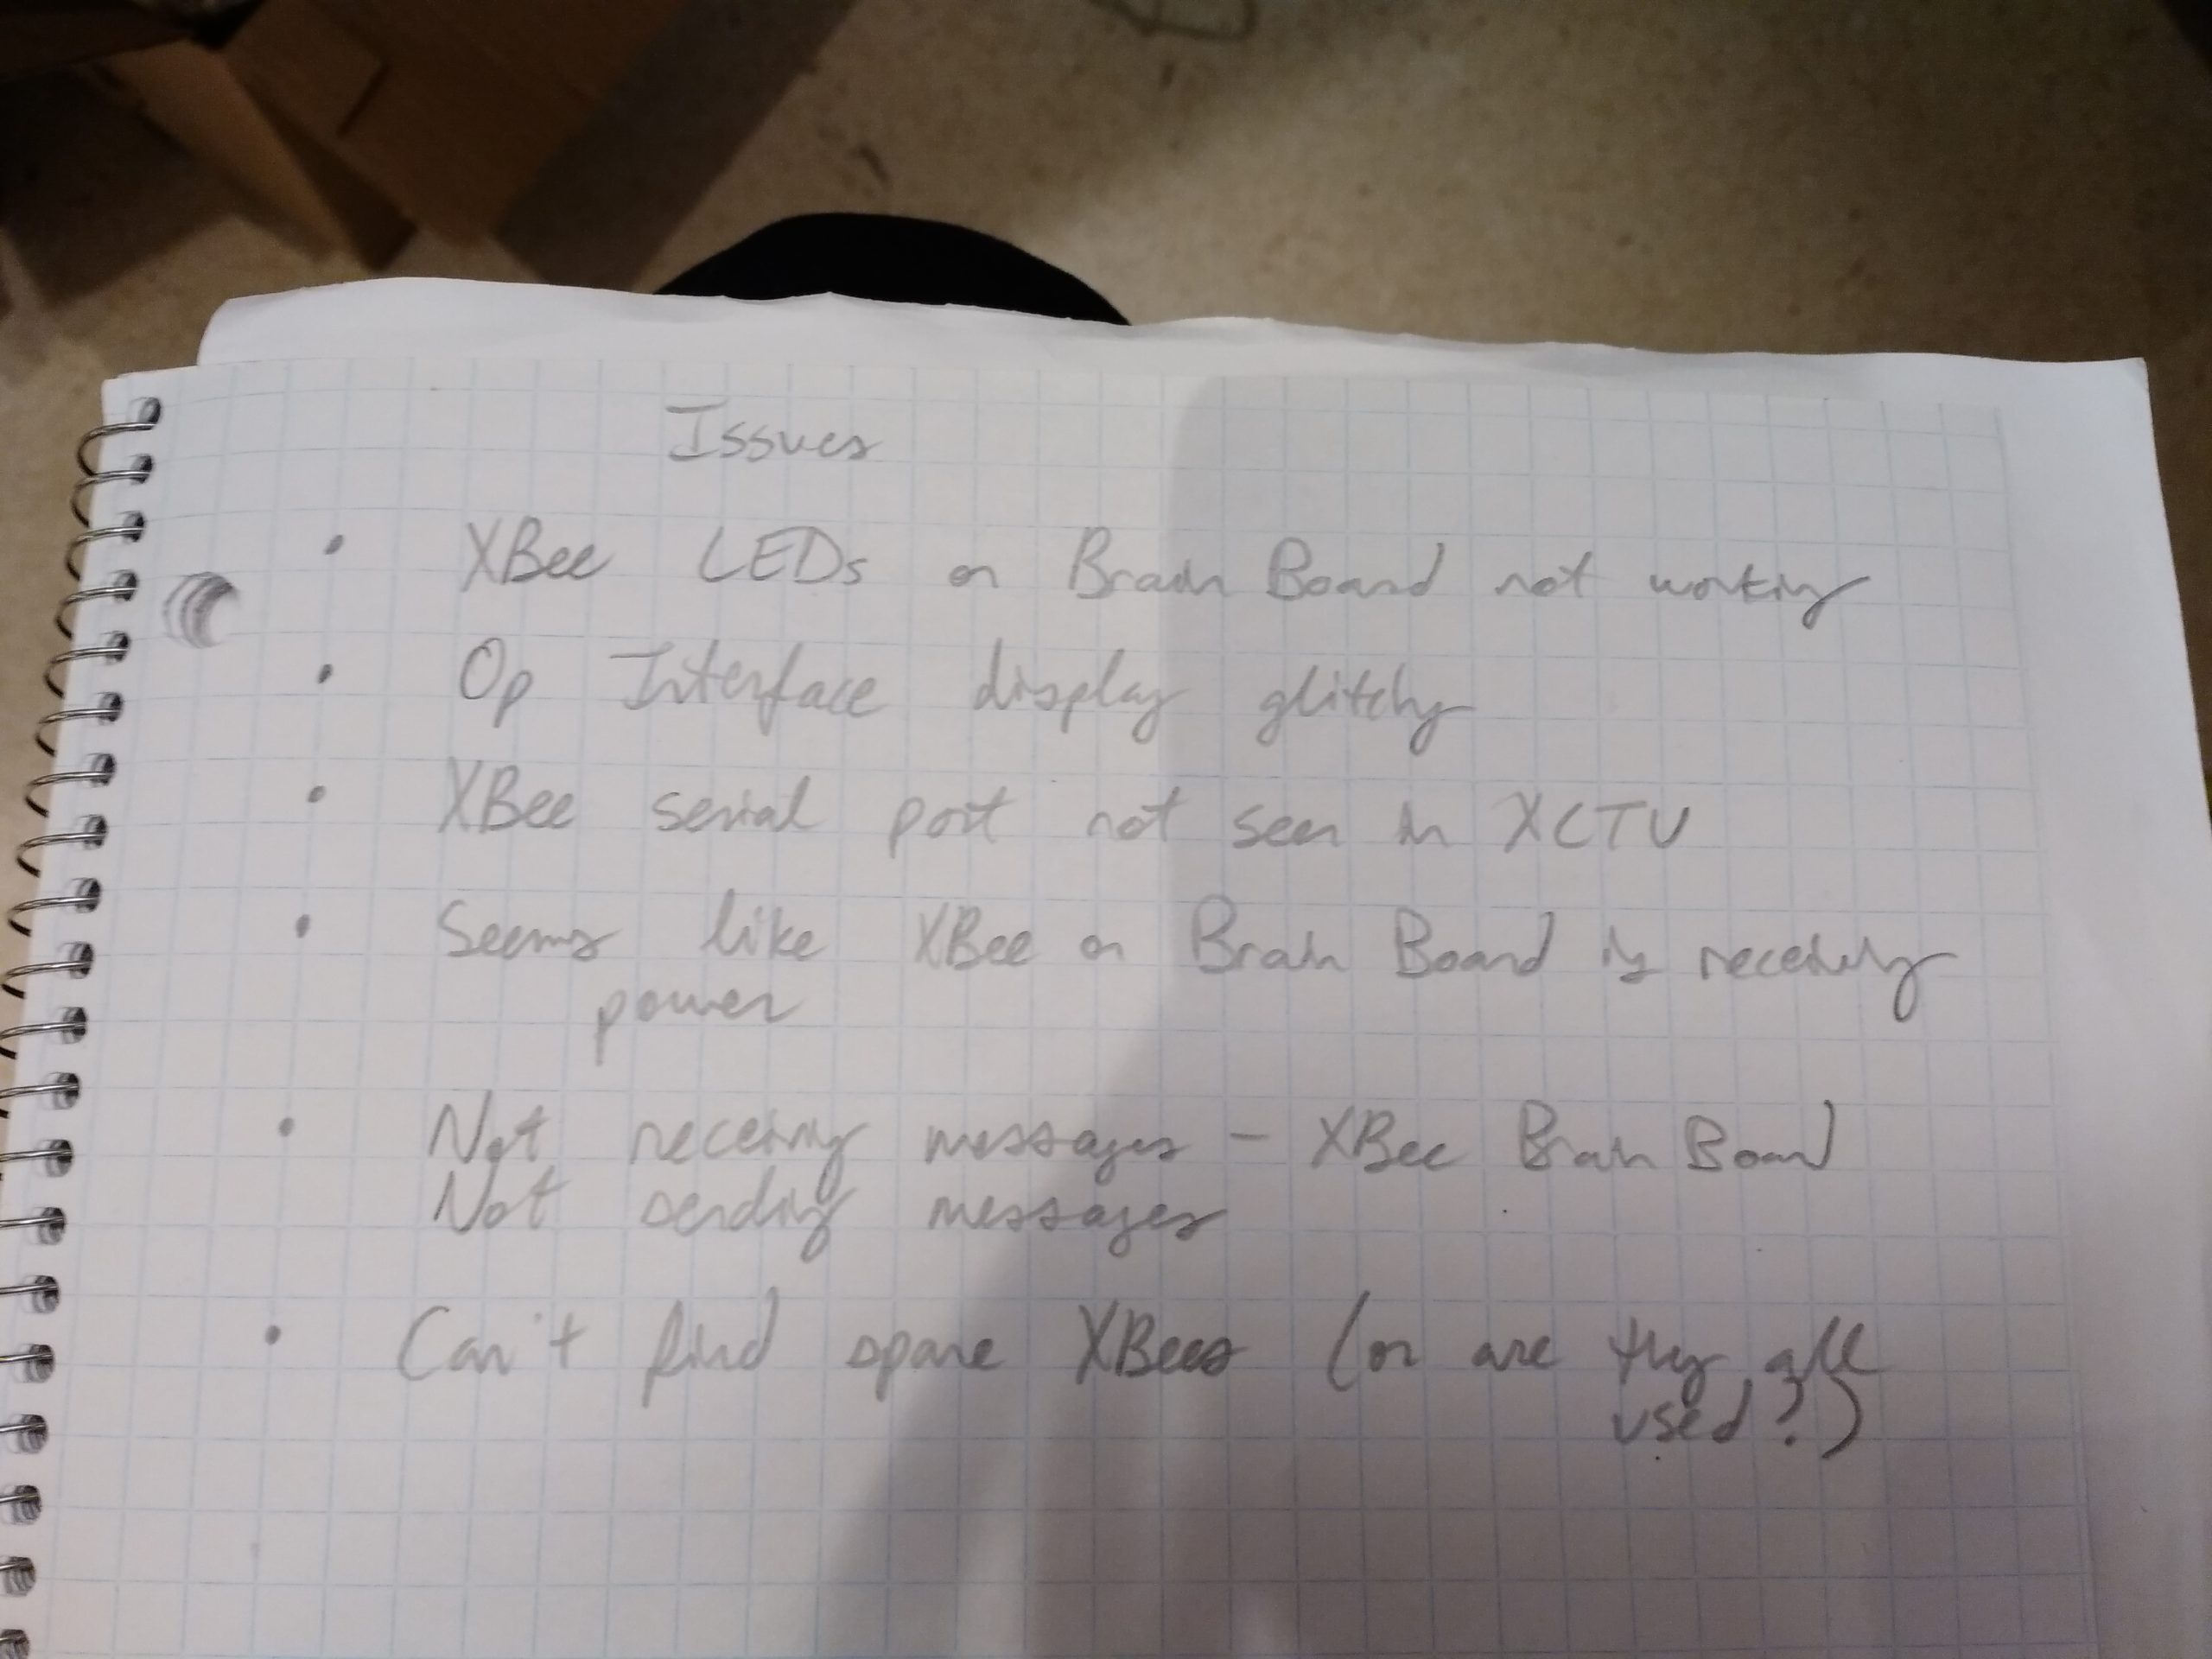 Issues
• XBee LEDs on Brain Board not working
• Op Interface display glitchy
• XBee serial port not seen in XCTU
• Seems like XBee on Brain Board is receiving
power
• Not receiving messages - XBee Brain Board
Not sending messages
• Can't find spare XBees (or are they all
used?)